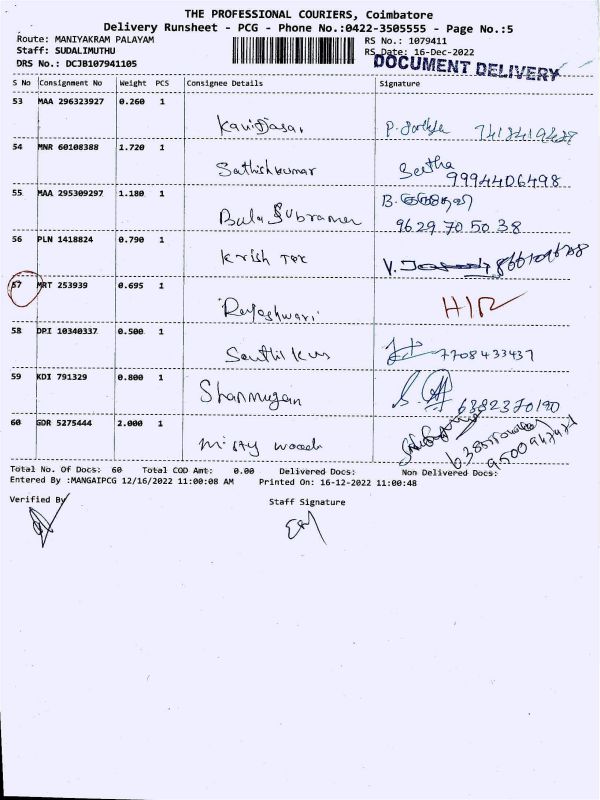 THE PROFESSIONAL COURIERS, Coimbatore
Delivery Runsheet - PCG - Phone No.:0422-3505555 - Page No.:5
Route: MANIYAKRAM PALAYAM
RS No.: 1079411
Staff: SUDALIMUTHU
RS Date: 16-Dec-2022
DRS No.: DCJB107941105
DOCUMENT DELIVERY
S No Consignment No Weight PCS Consignee Details Signature
53 MAA 296323927 0.260 1
P.
54 MNR 60108388 1.720 1
Sathishkumar
9994406498
55 MAA 295309297 1.180 1
Bala Subraman B.
9629705038
56 PLN 1418824 0.790 1
Krish Tex V.
57 MRT 253939 0.695 1
Rajeshwari
58 DPI 10340337 0.500 1
Senthil 7708433437
59 KDI 791329 0.800 1
Shanmugam S. 6382370190
60 GDR 5275444 2.000 1
Misty
Total No. Of Docs: 60 Total COD Amt: 0.00 Delivered Docs: Non Delivered Docs:
Entered By :MANGAIPCG 12/16/2022 11:00:08 AM Printed On: 16-12-2022 11:00:48
Verified By Staff Signature